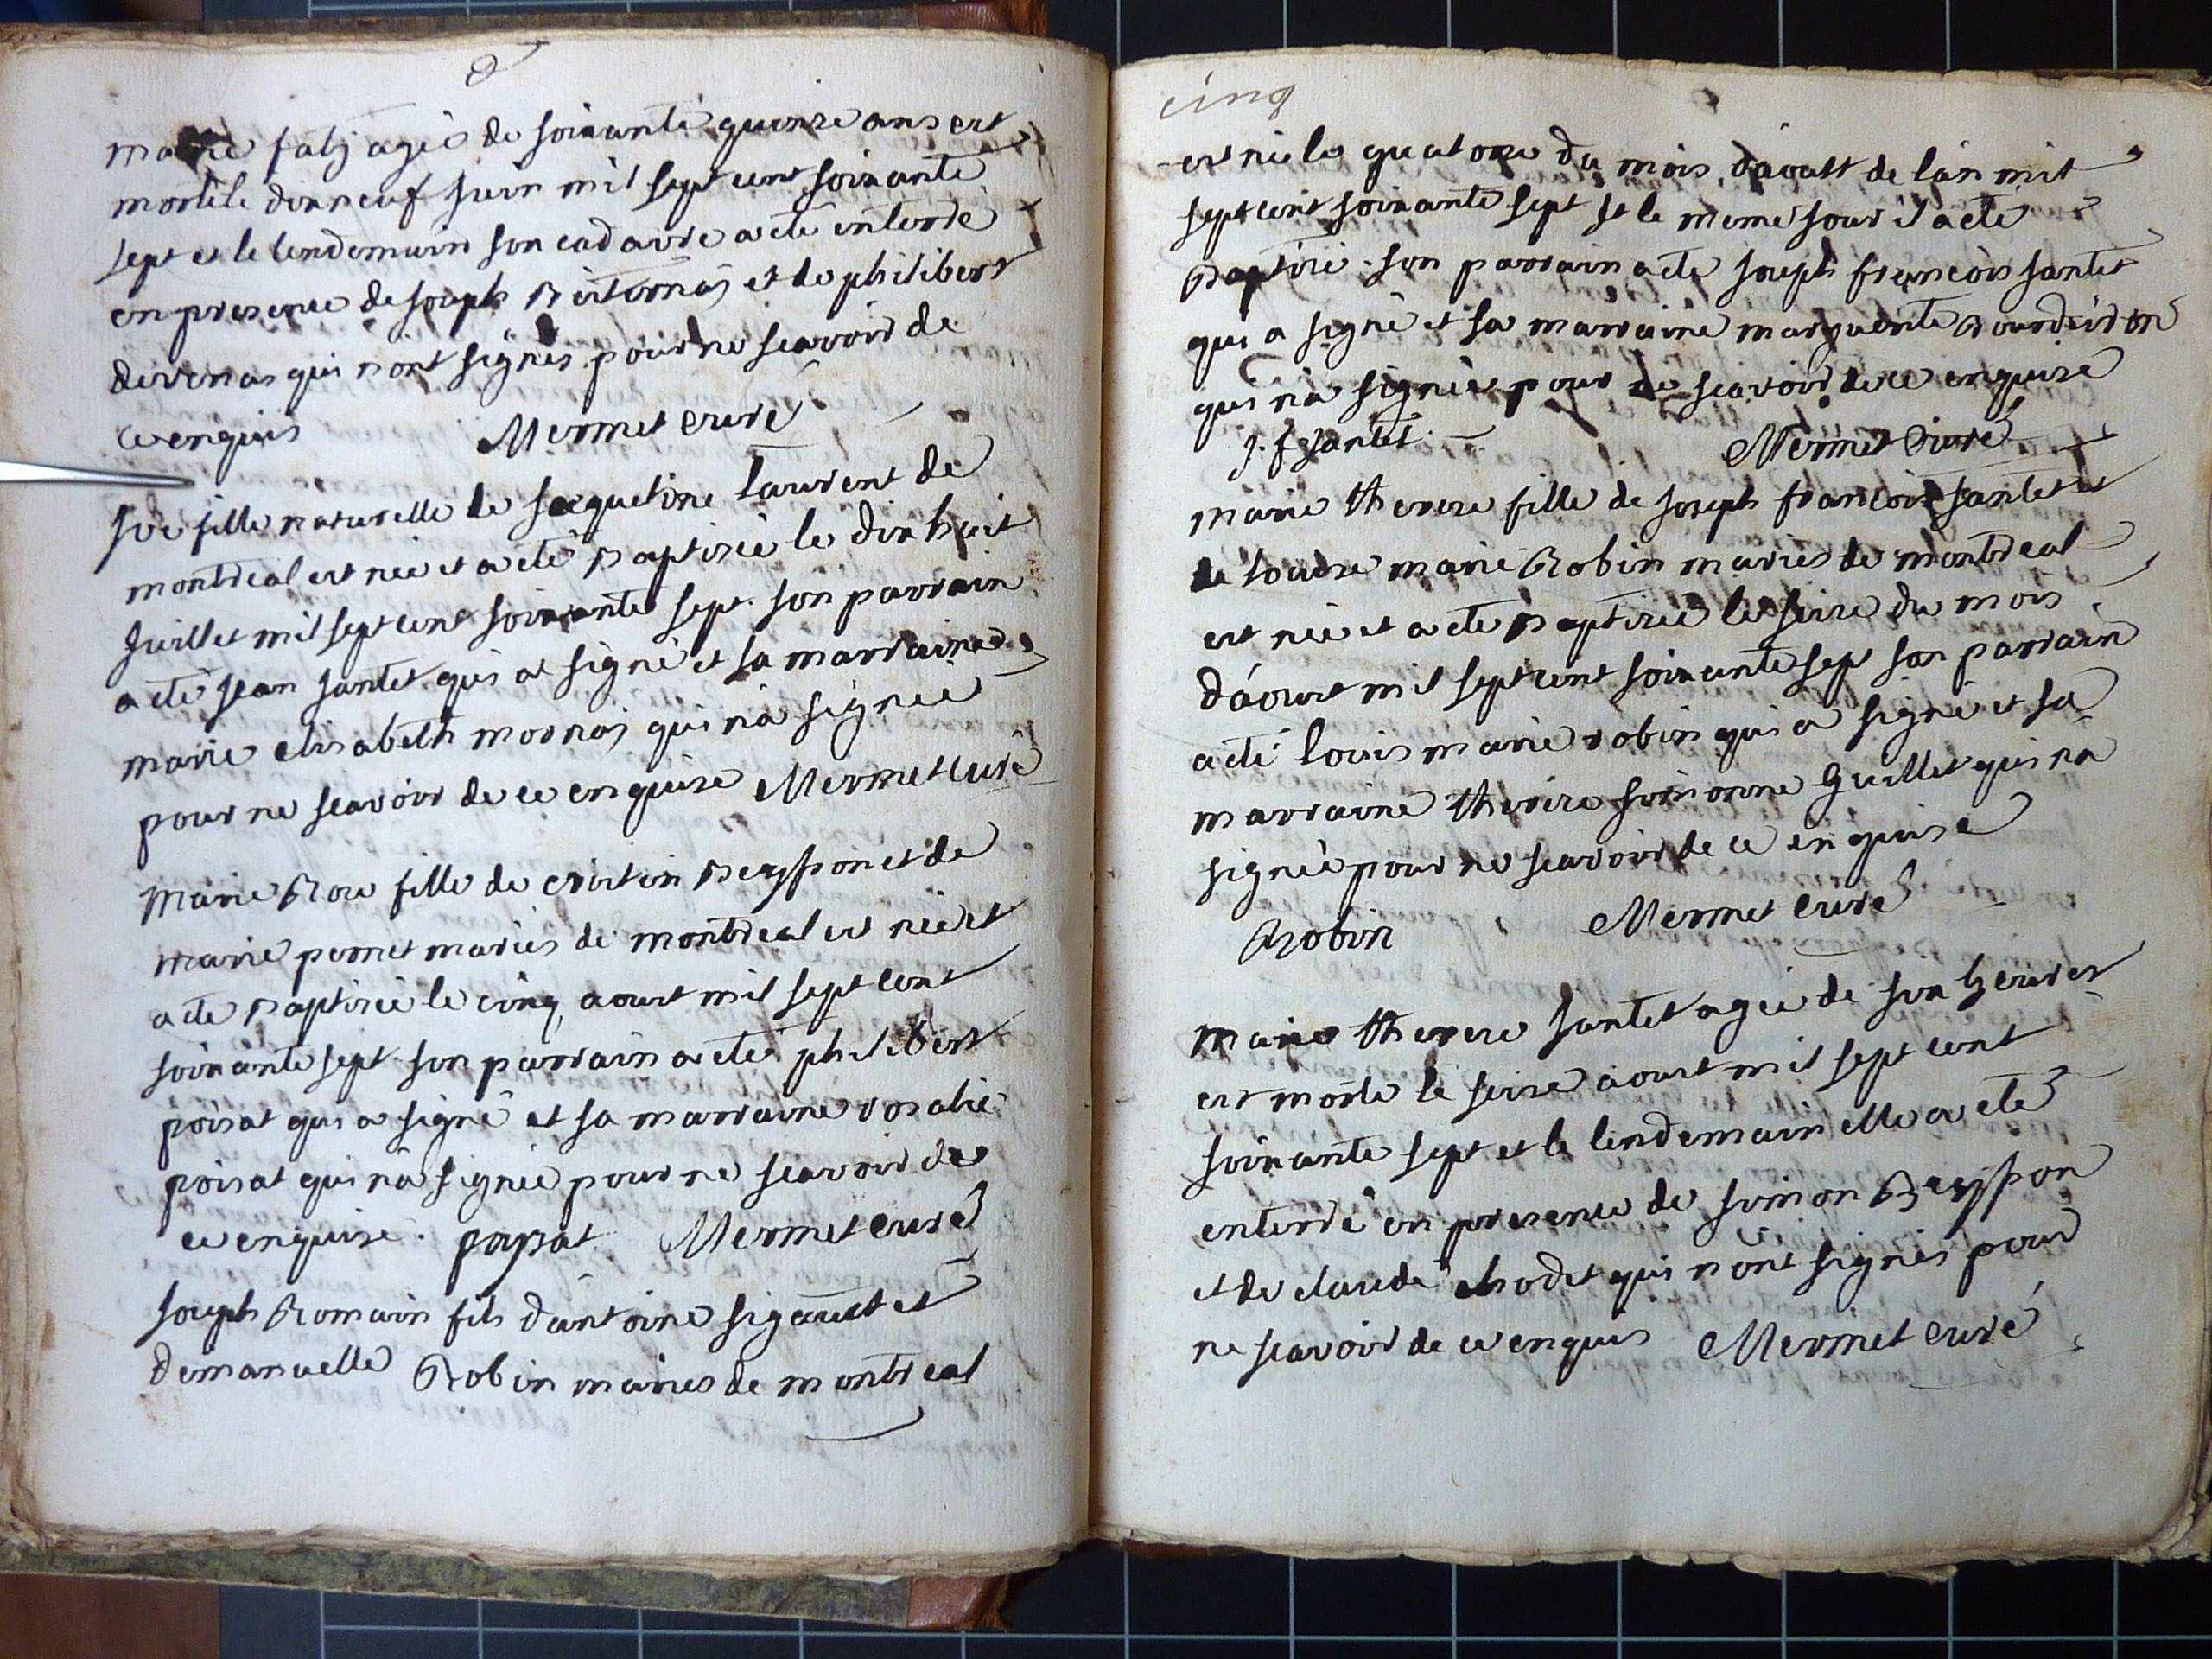 marie faly agée de soixante quinze ans est
morte le dixneuf juin mil sept cent soixante
sept et le lendemain son cadavre a eté enterré
en presence de joseph et de philibert
devenas qui n'ont signés pour ne scavoir de
ce enquis Mermet curé
fille naturelle de jacqueline laurent de
montreal est née et a eté baptisée le dix huit
juillet mil sept cent soixante sept son parrain
a eté jean jantet qui a signé et sa marraine
marie elisabeth mornay qui n'a signée
pour ne scavoir de ce enquise Mermet curé
Marie Rose fille de cristin Beysson et de
marie pernet mariés de montreal est née et
a eté baptisée le cinq aoust mil sept cent
soixante sept son parrain a eté philibert
poisat qui a signé et sa marraine rosalie
poisat qui n'a signée pour ne scavoir de
ce enquise. poysat Mermet curé
joseph Romain fils d'antoine sigault et
demanuelle Robin mariés de montreal
cinq
est née le quatorze du mois d'aoust de l'an mil
sept cent soixante sept et le meme jour il a eté
Baptisé. son parrain a eté joseph francois jantet
qui a signé et sa marraine marguerite
qui n'a signée pour ne scavoir de ce enquise
j. f jantet. Mermet Curé
marie therese fille de joseph francois jantet et
de louise marie Robin mariés de montreal
est née et a eté baptisée le seize du mois
d'aoust mil sept cent soixante sept son parrain
a eté louis marie robin qui a signé et sa
marraine therese simonne guillet qui n'a
signée pour ne scavoir de ce enquise
Robin Mermet curé
marie therese jantet agée de six heures
est morte le seize aoust mil sept cent
soixante sept et le lendemain elle a eté
enterré en presence de simon Beysson
et de claude chodet qui n'ont signés pour
ne scavoir de ce enquis Mermet curé